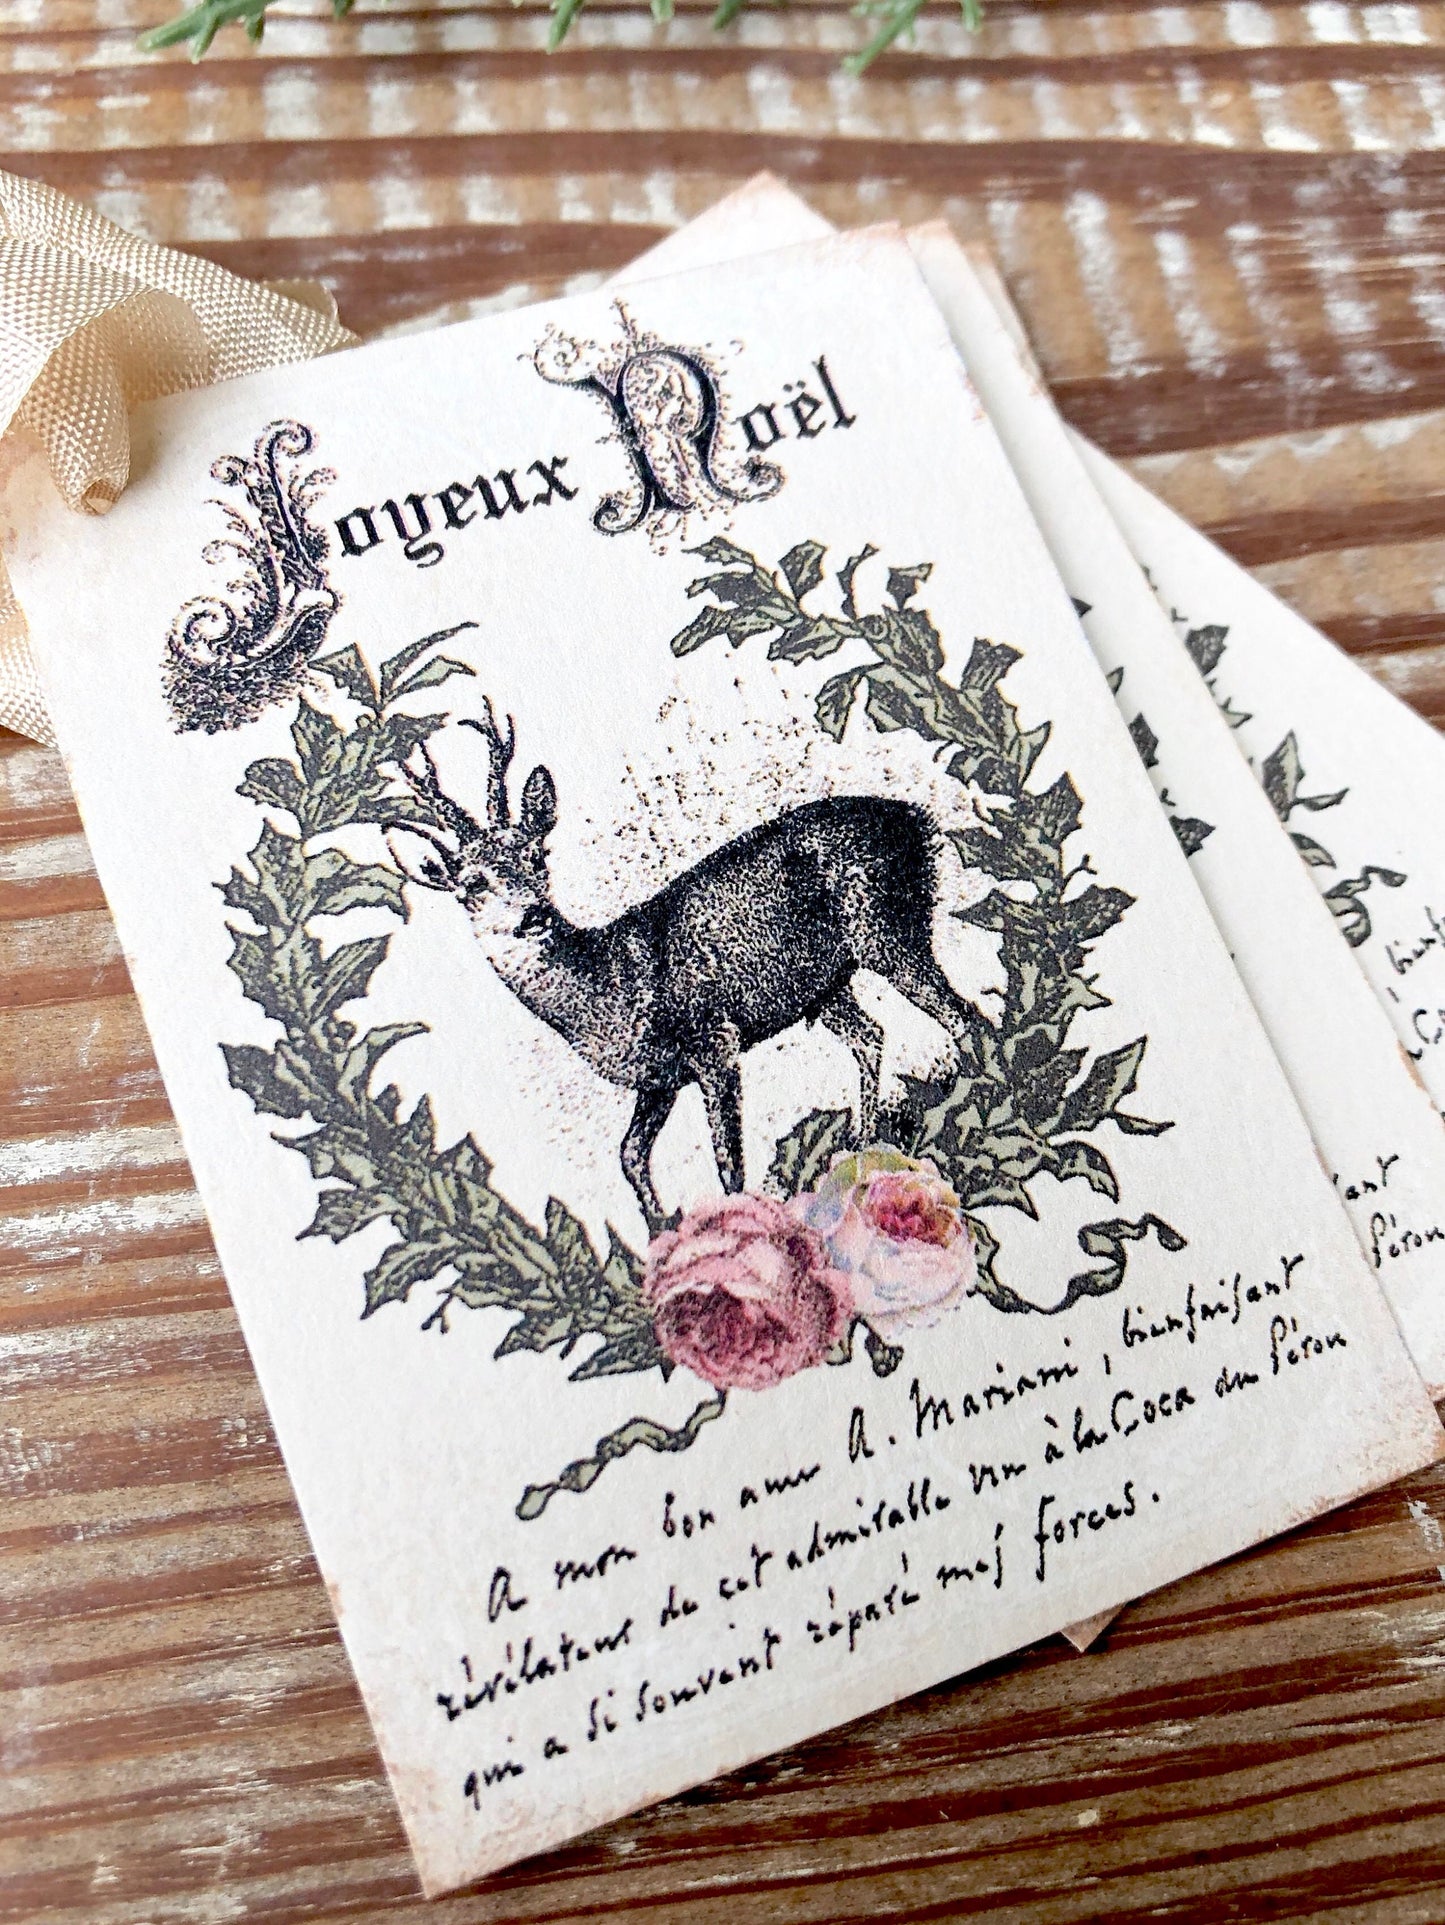 Joyeux Noël
A mon bon ami A. Mariani, bienfaisant
révélateur de cet admirable vin à la Coca du Pérou
qui a si souvent réparé mes forces.
bienf
Co
sant
Pérou